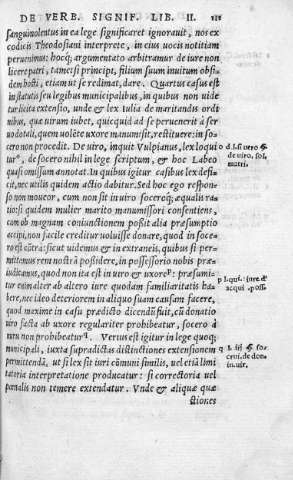 DE VERB. SIGNIF. LIB. II.
sanguinolentus in ea lege significaret ignorauit, nos ex
codicis Theodosiani interprete, in eius uocis notitiam
peruenimus: hocq; argumento arbitramur de iure non
licere patri, tametsi principi, filium suum inuitum obsi-
dem hosti, etiam ut se redimat, dare. Quartus casus est
in statutis seu legibus municipalibus, in quibus non uide
tur licita extensio, unde & lex Iulia de maritandis ordi
nibus, quæ uirum iubet, quicquid ad se peruenerit à ser
uo dotali, quem uolẽte uxore manumisit, restituere: in so
cero non procedit. De uiro, imquit Vulpianus, lex loqui
tur, de socero nihil in lege scriptum, & hoc Labeo
quasi omissum annotat. In quibus igitur casibus lex defi-
cit, nec utilis quidem actio dabitur. Sed hoc ego respon-
so non moueor, cum non sit in uiro soceroq; æqualis ra-
tio: si quidem mulier marito manumissori consentiens,
cum ob magnam coniunctionem possit alia præsumptio
accipi, non facile creditur uoluisse donare, quod in soce-
ro est cõtrà: sicut uidemus & in extraneis, quibus si per-
mittimus rem nostrã possidere, in possessorio nobis præ-
iudicamus, quod non ita est in uiro & uxore: præsumi-
tur enim alter ab altero iure quodam familiaritatis ha-
bere, nec ideo deteriorem in aliquo suam causam facere,
quod maxime in casu prædicto dicendũ fuit, cũ donatio
uiro facta ab uxore regulariter prohibeatur, socero à
nuru non prohibeatur. Verius est igitur in lege quoq;
municipali, iuxta supradictas distinctiones extensionem
recipi, ut lex sit iuri cõmuni similis, uel etiã limi
tatoria interpretatione producatur: si correctoria uel
pœnalis non temere extendatur. Vnde & aliquæ quæ
stiones
o d. l. si uero §.
de uiro. sol.
matri.
q l. si §. so-
croi. de don.
in. uir.